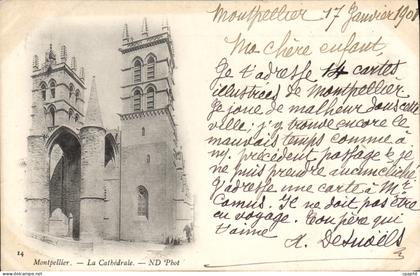 Montpellier 17 Janvier 1901
Ma chère enfant,
Je t'adresse 14 cartes
illustrées de Montpellier
Je joue de malheur dans cette
ville; j'y trouve encore le
mauvais temps comme à
my précédent passage & je
ne puis prendre aucun cliché
J'adresse une carte à Mr
Camus. Il ne doit pas être
en voyage. Ton père qui
t'aime
A. Desnoëls
14
Montpellier. — La Cathédrale. — ND Phot